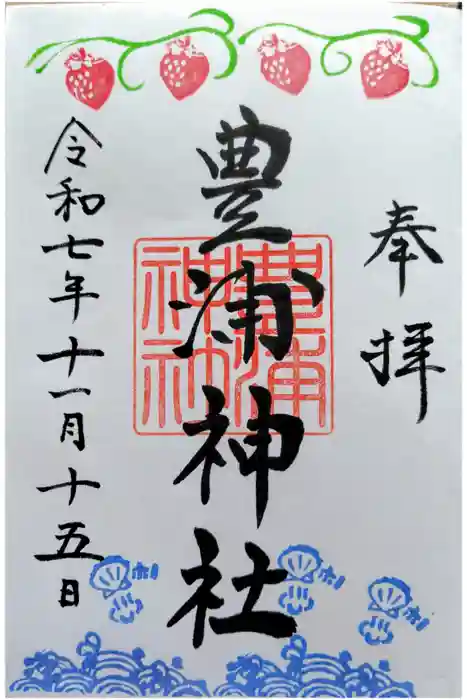 奉拝
豊浦神社
豊浦神社
令和七年十一月十五日
ホ
ホ
ホ